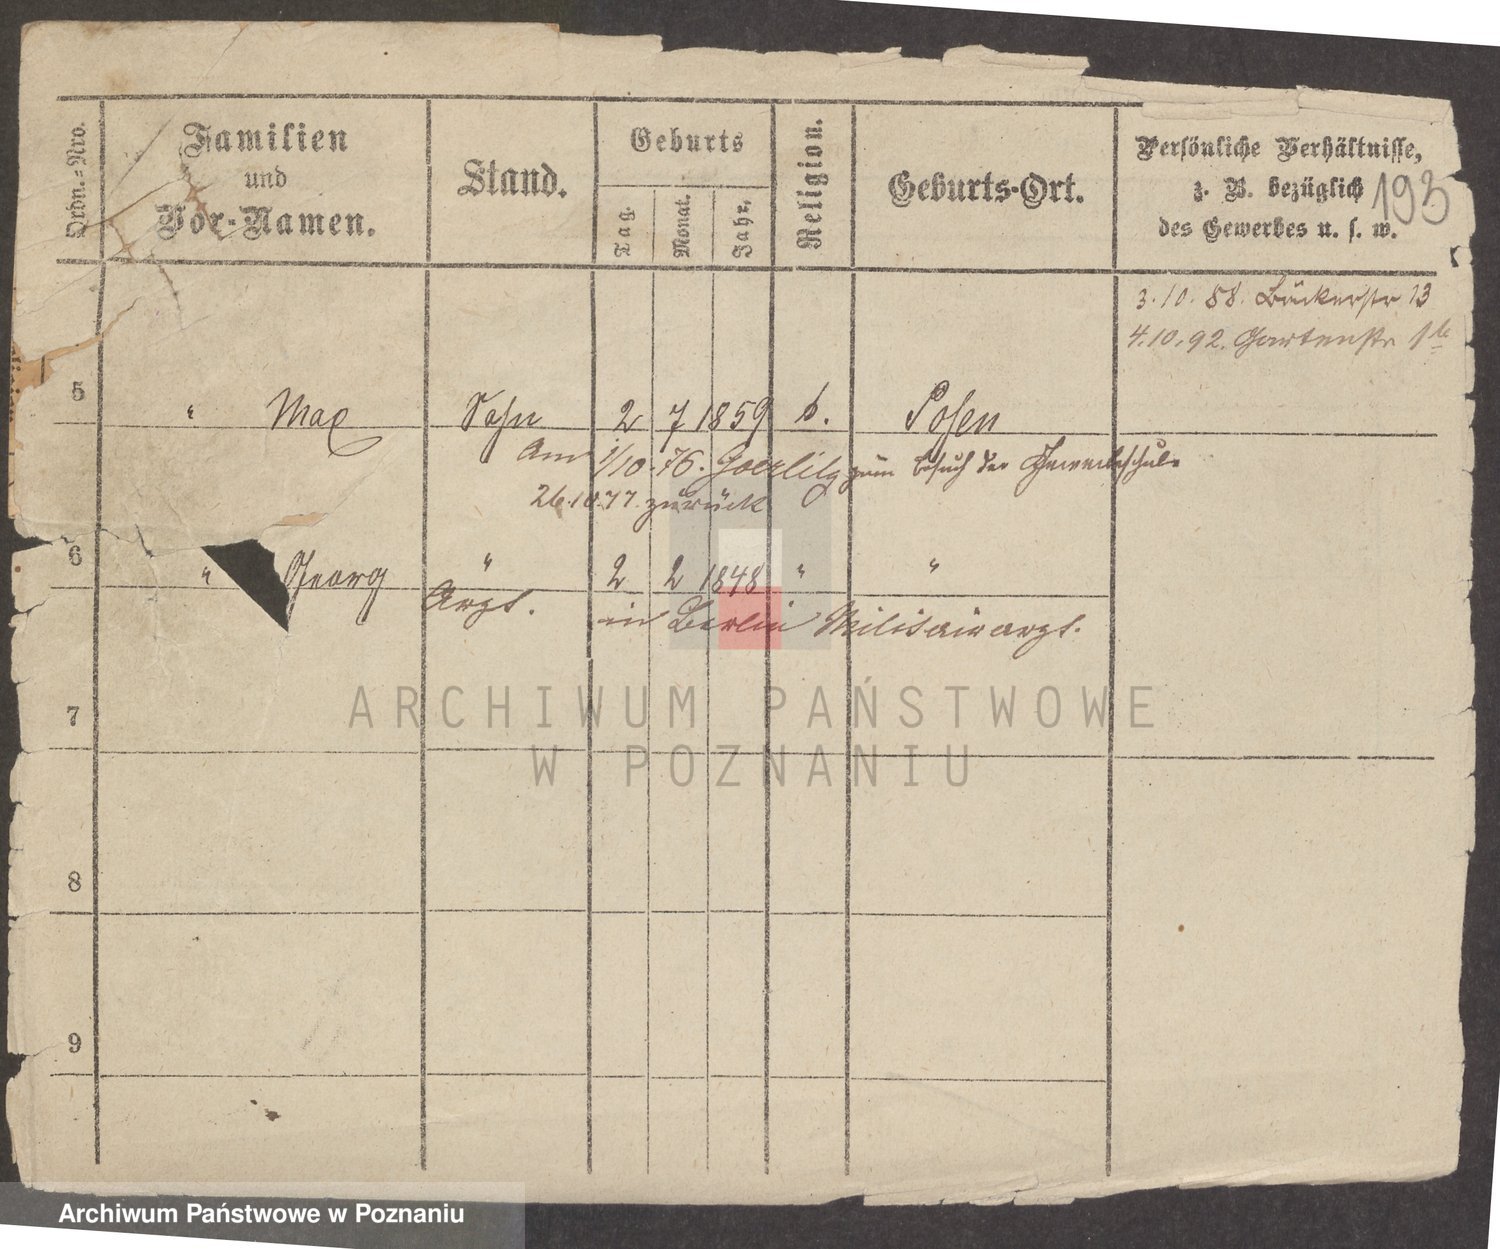 Ordn.-Nro.
Familien
und
Vor-Namen.
Stand.
Geburts
Tag.
Monat.
Jahr.
Religion.
Geburts-Ort.
Persönliche Verhältnisse,
z. B. bezüglich
des Gewerbes u. s. w.
193
3.10.88. Bäckerstr 13
4.10.92. Gartenstr 1
5 " Max Sohn 2 7 1859 Posen
Am 1/10.76. Goerlitz zum Besuch der Gewerbeschule
26.10.77. zurück
6 " Georg " 2 2 1848 " "
Arzt. in Berlin Militairarzt.
7
8
9
ARCHIWUM PAŃSTWOWE
W POZNANIU
Archiwum Państwowe w Poznaniu